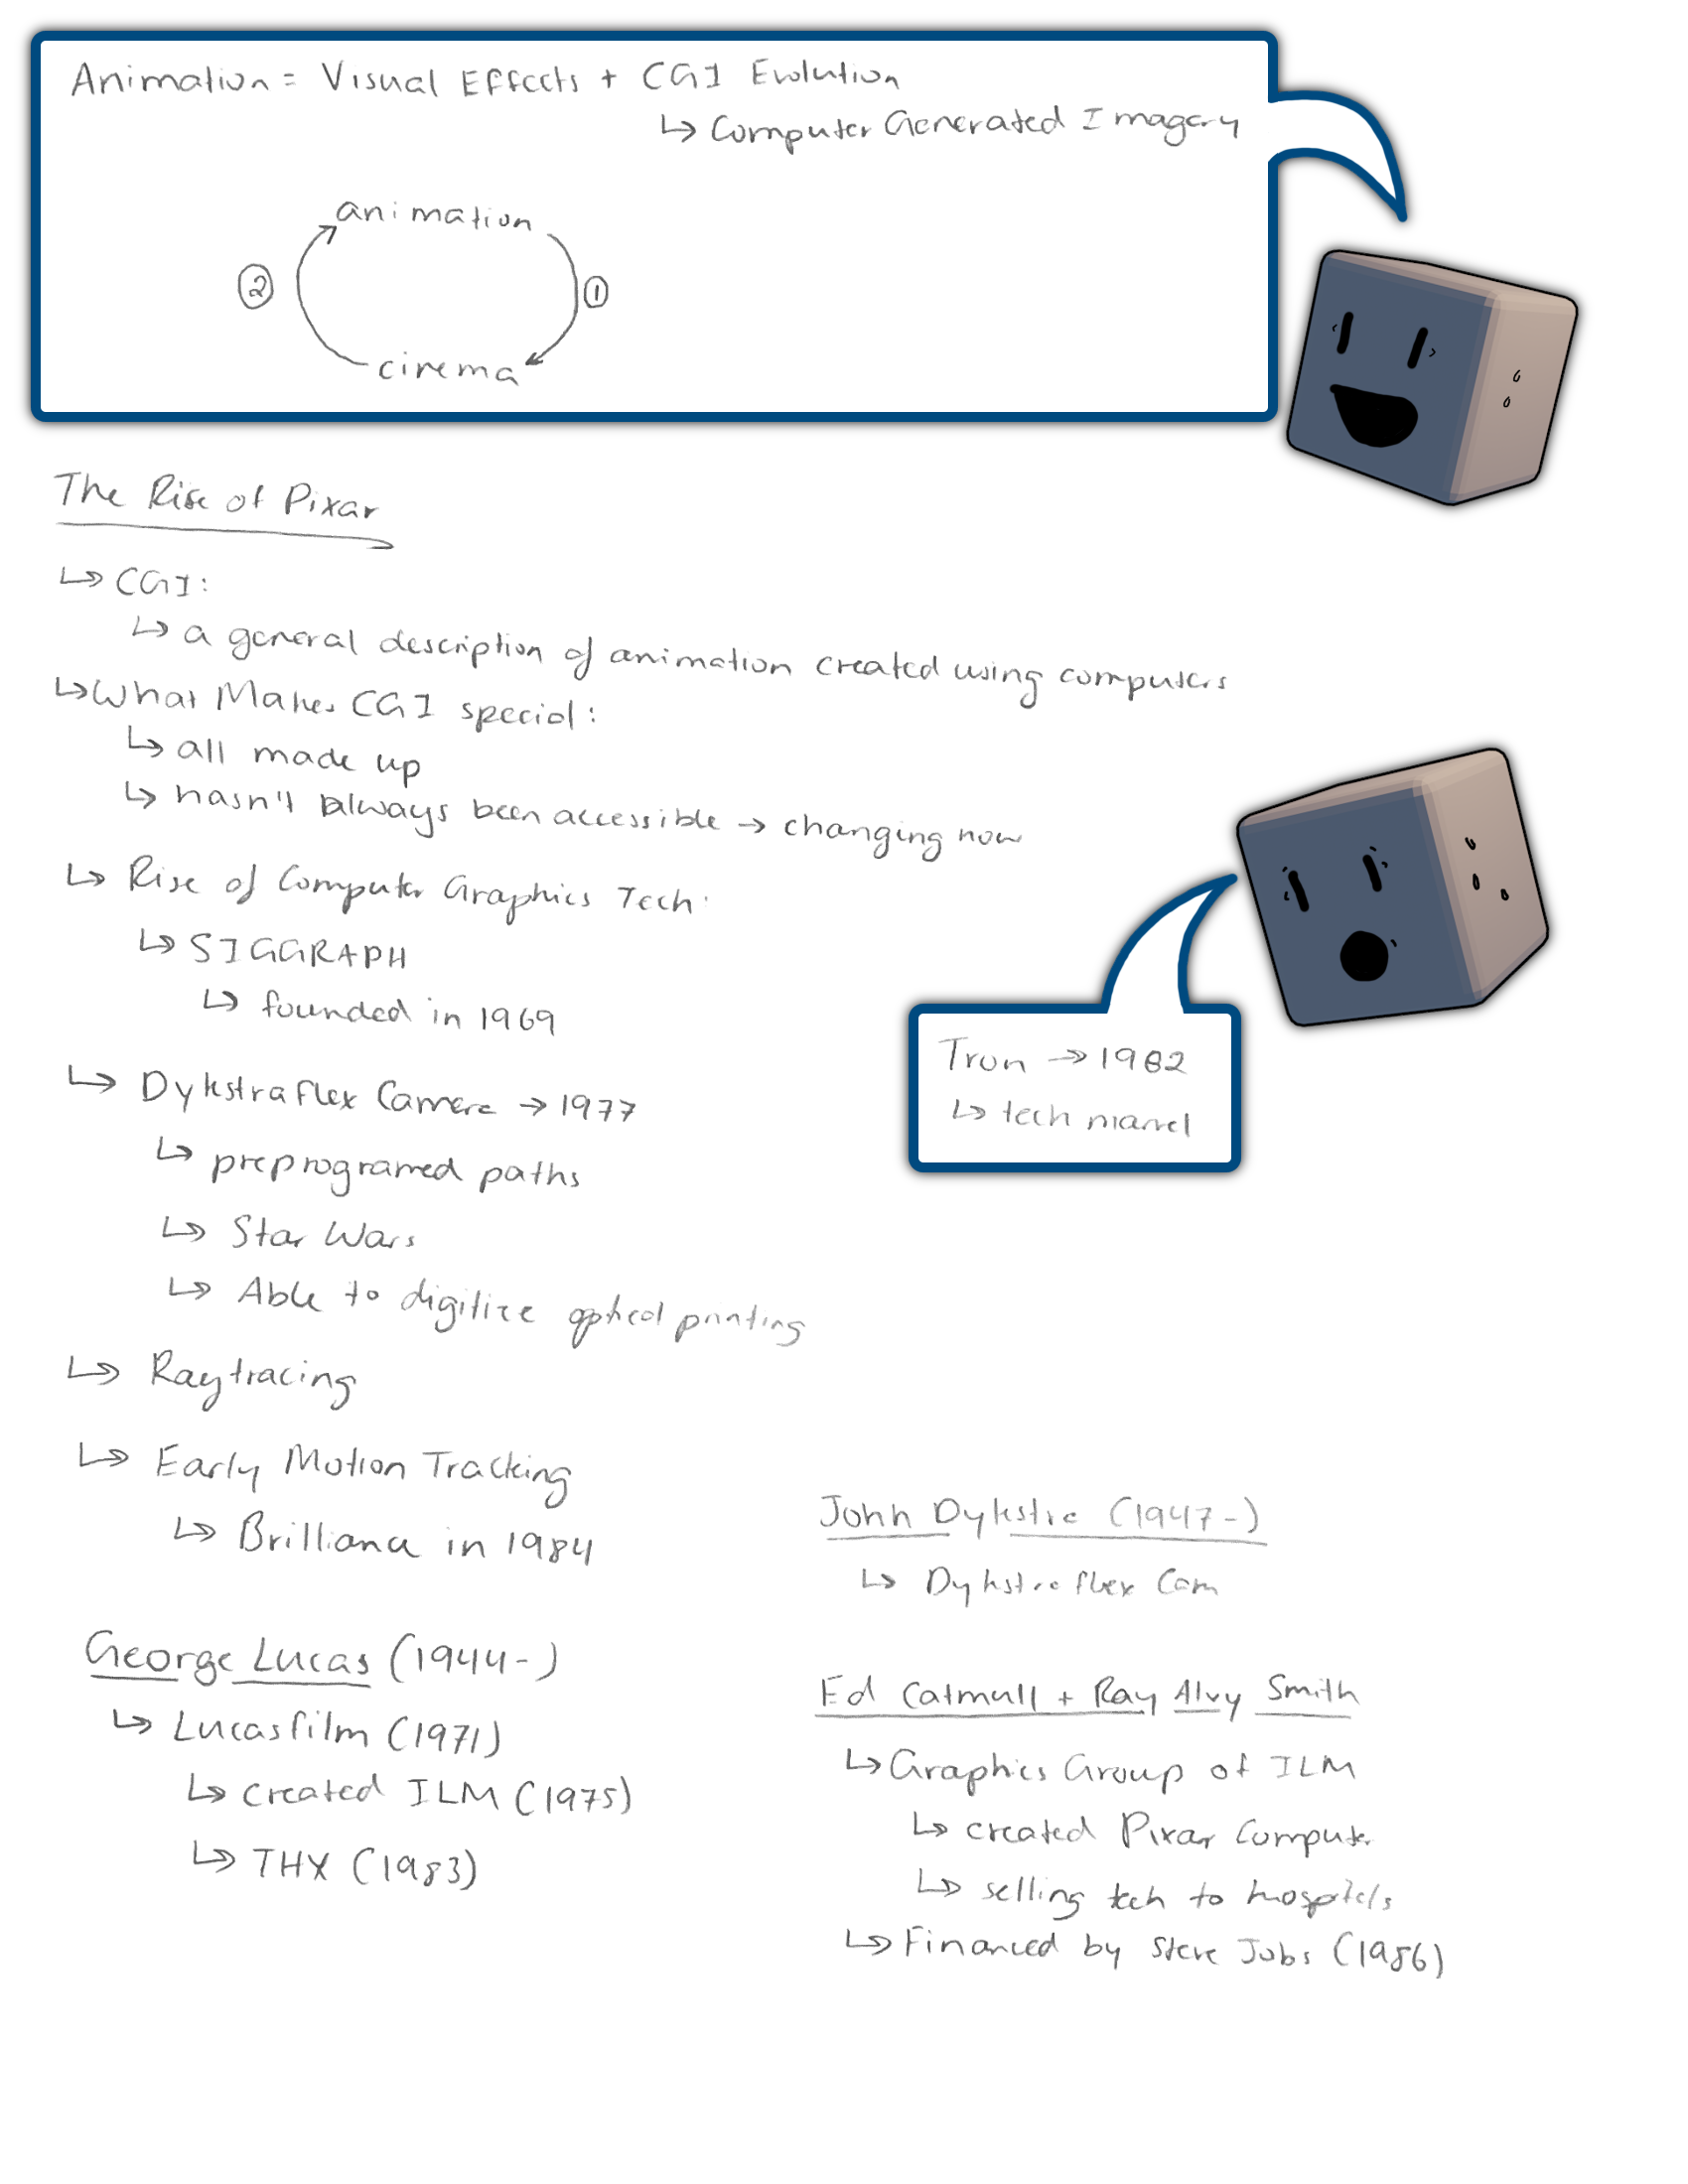 Animation = Visual Effects + CGI Evolution
↳ Computer Generated Imagery
animation
② ①
cinema
The Rise of Pixar
↳ CGI:
↳ a general description of animation created using computers
↳ What Makes CGI special:
↳ all made up
↳ hasn't always been accessible → changing now
↳ Rise of Computer Graphics Tech:
↳ SIGGRAPH
↳ founded in 1969
↳ Dykstraflex Camera → 1977
↳ preprogramed paths
↳ Star Wars
↳ Able to digitize optical printing
↳ Raytracing
↳ Early Motion Tracking
↳ Brilliance in 1984
Tron → 1982
↳ tech marvel
George Lucas (1944-)
↳ Lucasfilm (1971)
↳ created ILM (1975)
↳ THX (1983)
John Dykstra (1947-)
↳ Dykstraflex Cam
Ed Catmull + Ray Alvy Smith
↳ Graphics Group of ILM
↳ created Pixar Computer
↳ selling tech to hospitals
↳ Financed by Steve Jobs (1986)